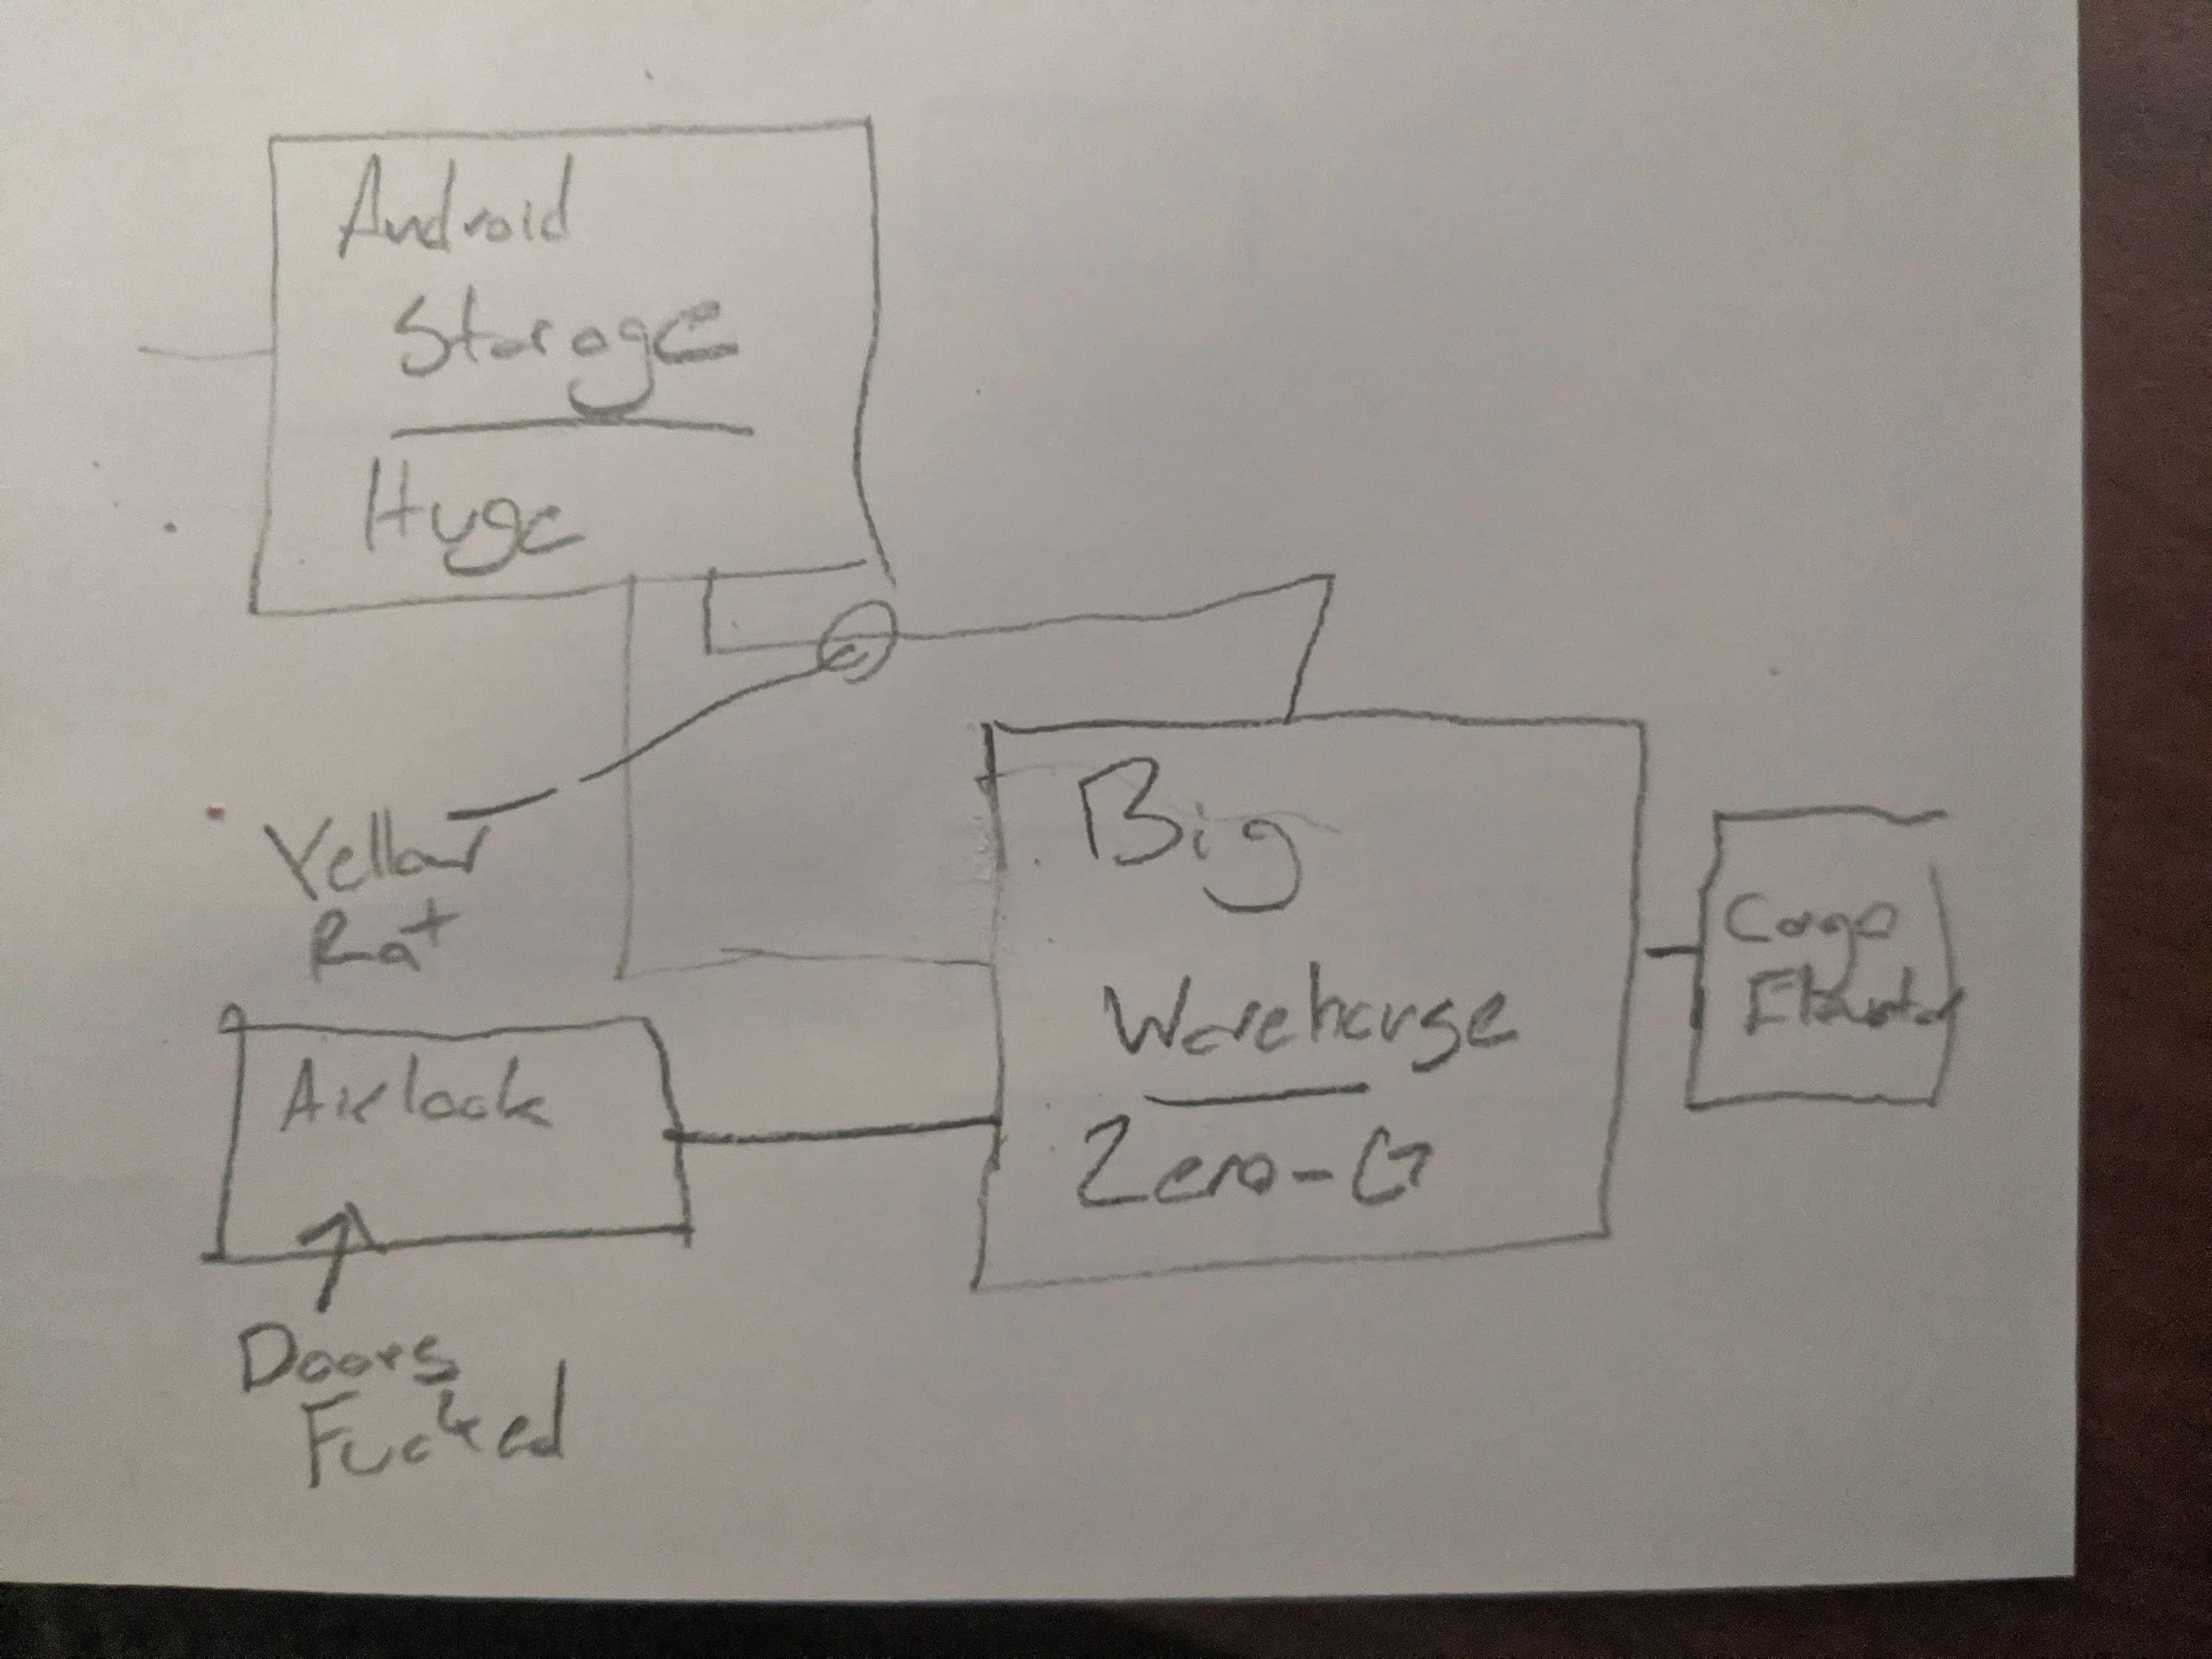 Android
Storage
Huge
Yellow
Rat
Big
Warehouse
Zero-G
Cargo
Elevator
Airlock
Doors
Fucked